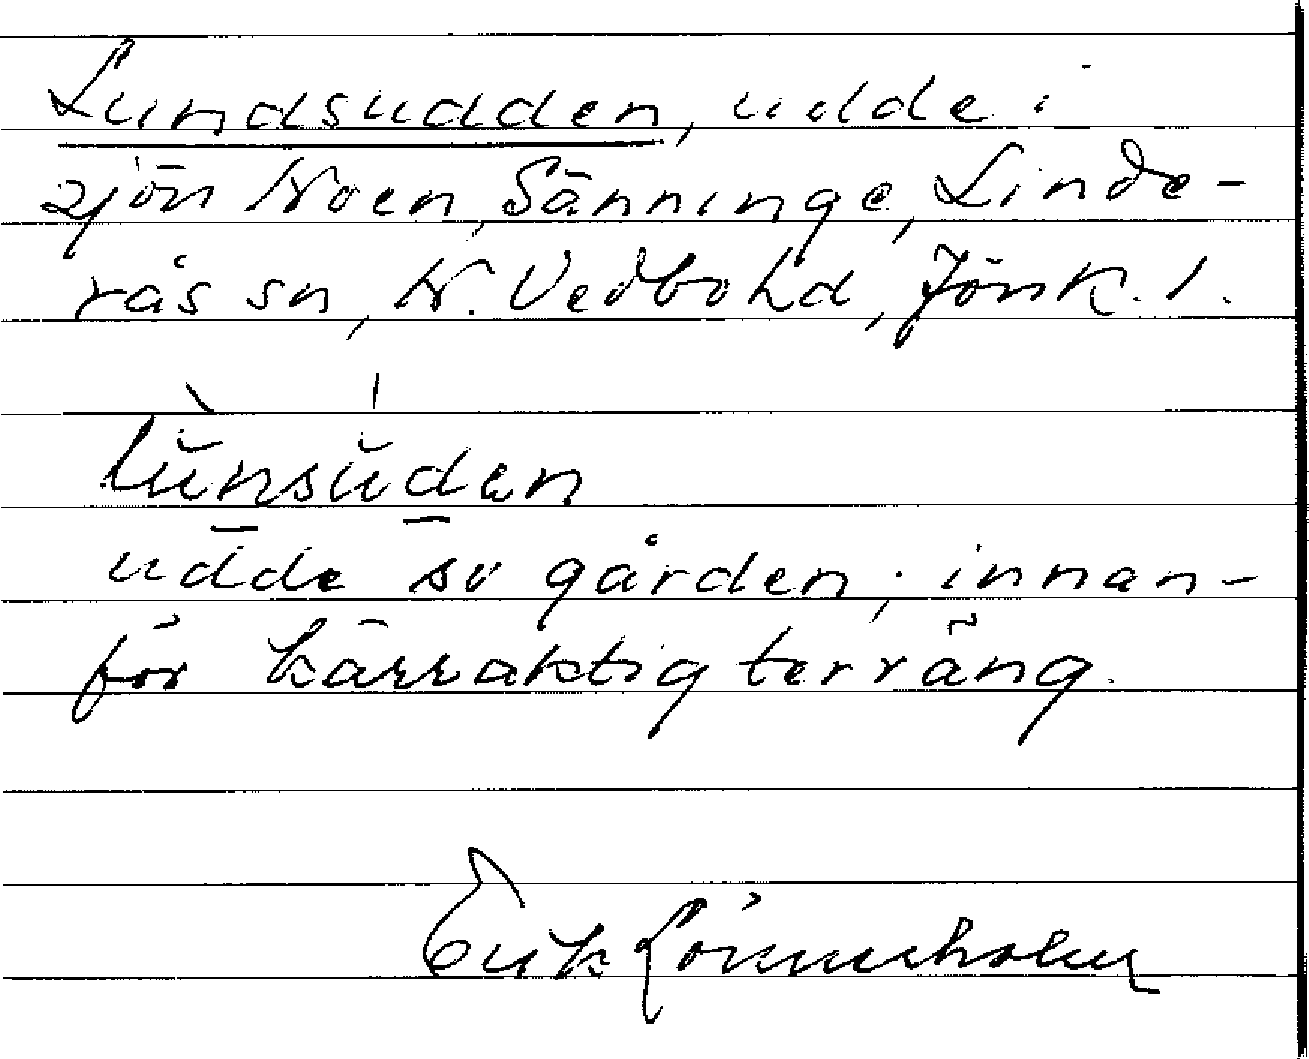 Lundsudden, udde i
sjön Noen, Sänninge, Linde-
rås sn, N. Vedbo hd, Jönk. l.
lùnsúden
udde so gården; innan-
för kärraktig terräng.
Erik Lönnerholm